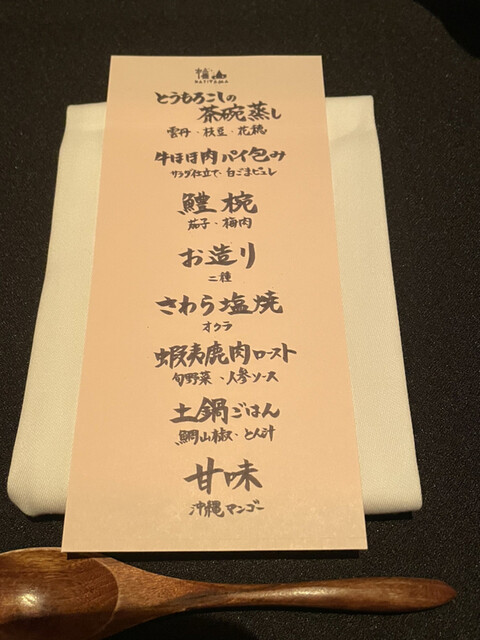 とうもろこしの
茶碗蒸し
雲丹・枝豆・花穂
牛ほほ肉パイ包み
サラダ仕立て・白ごまピュレ
鱧椀
茄子・梅肉
お造り
二種
さわら塩焼
オクラ
蝦夷鹿肉ロースト
旬野菜、人参ソース
土鍋ごはん
鯛山椒・とん汁
甘味
沖縄マンゴー